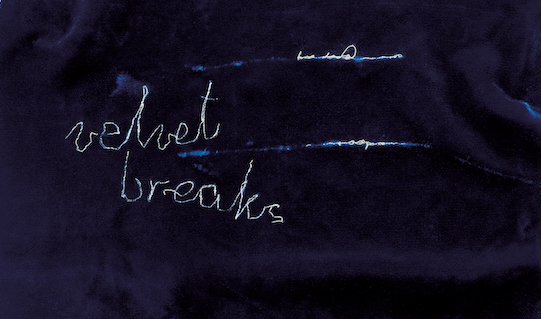 velvet
breaks